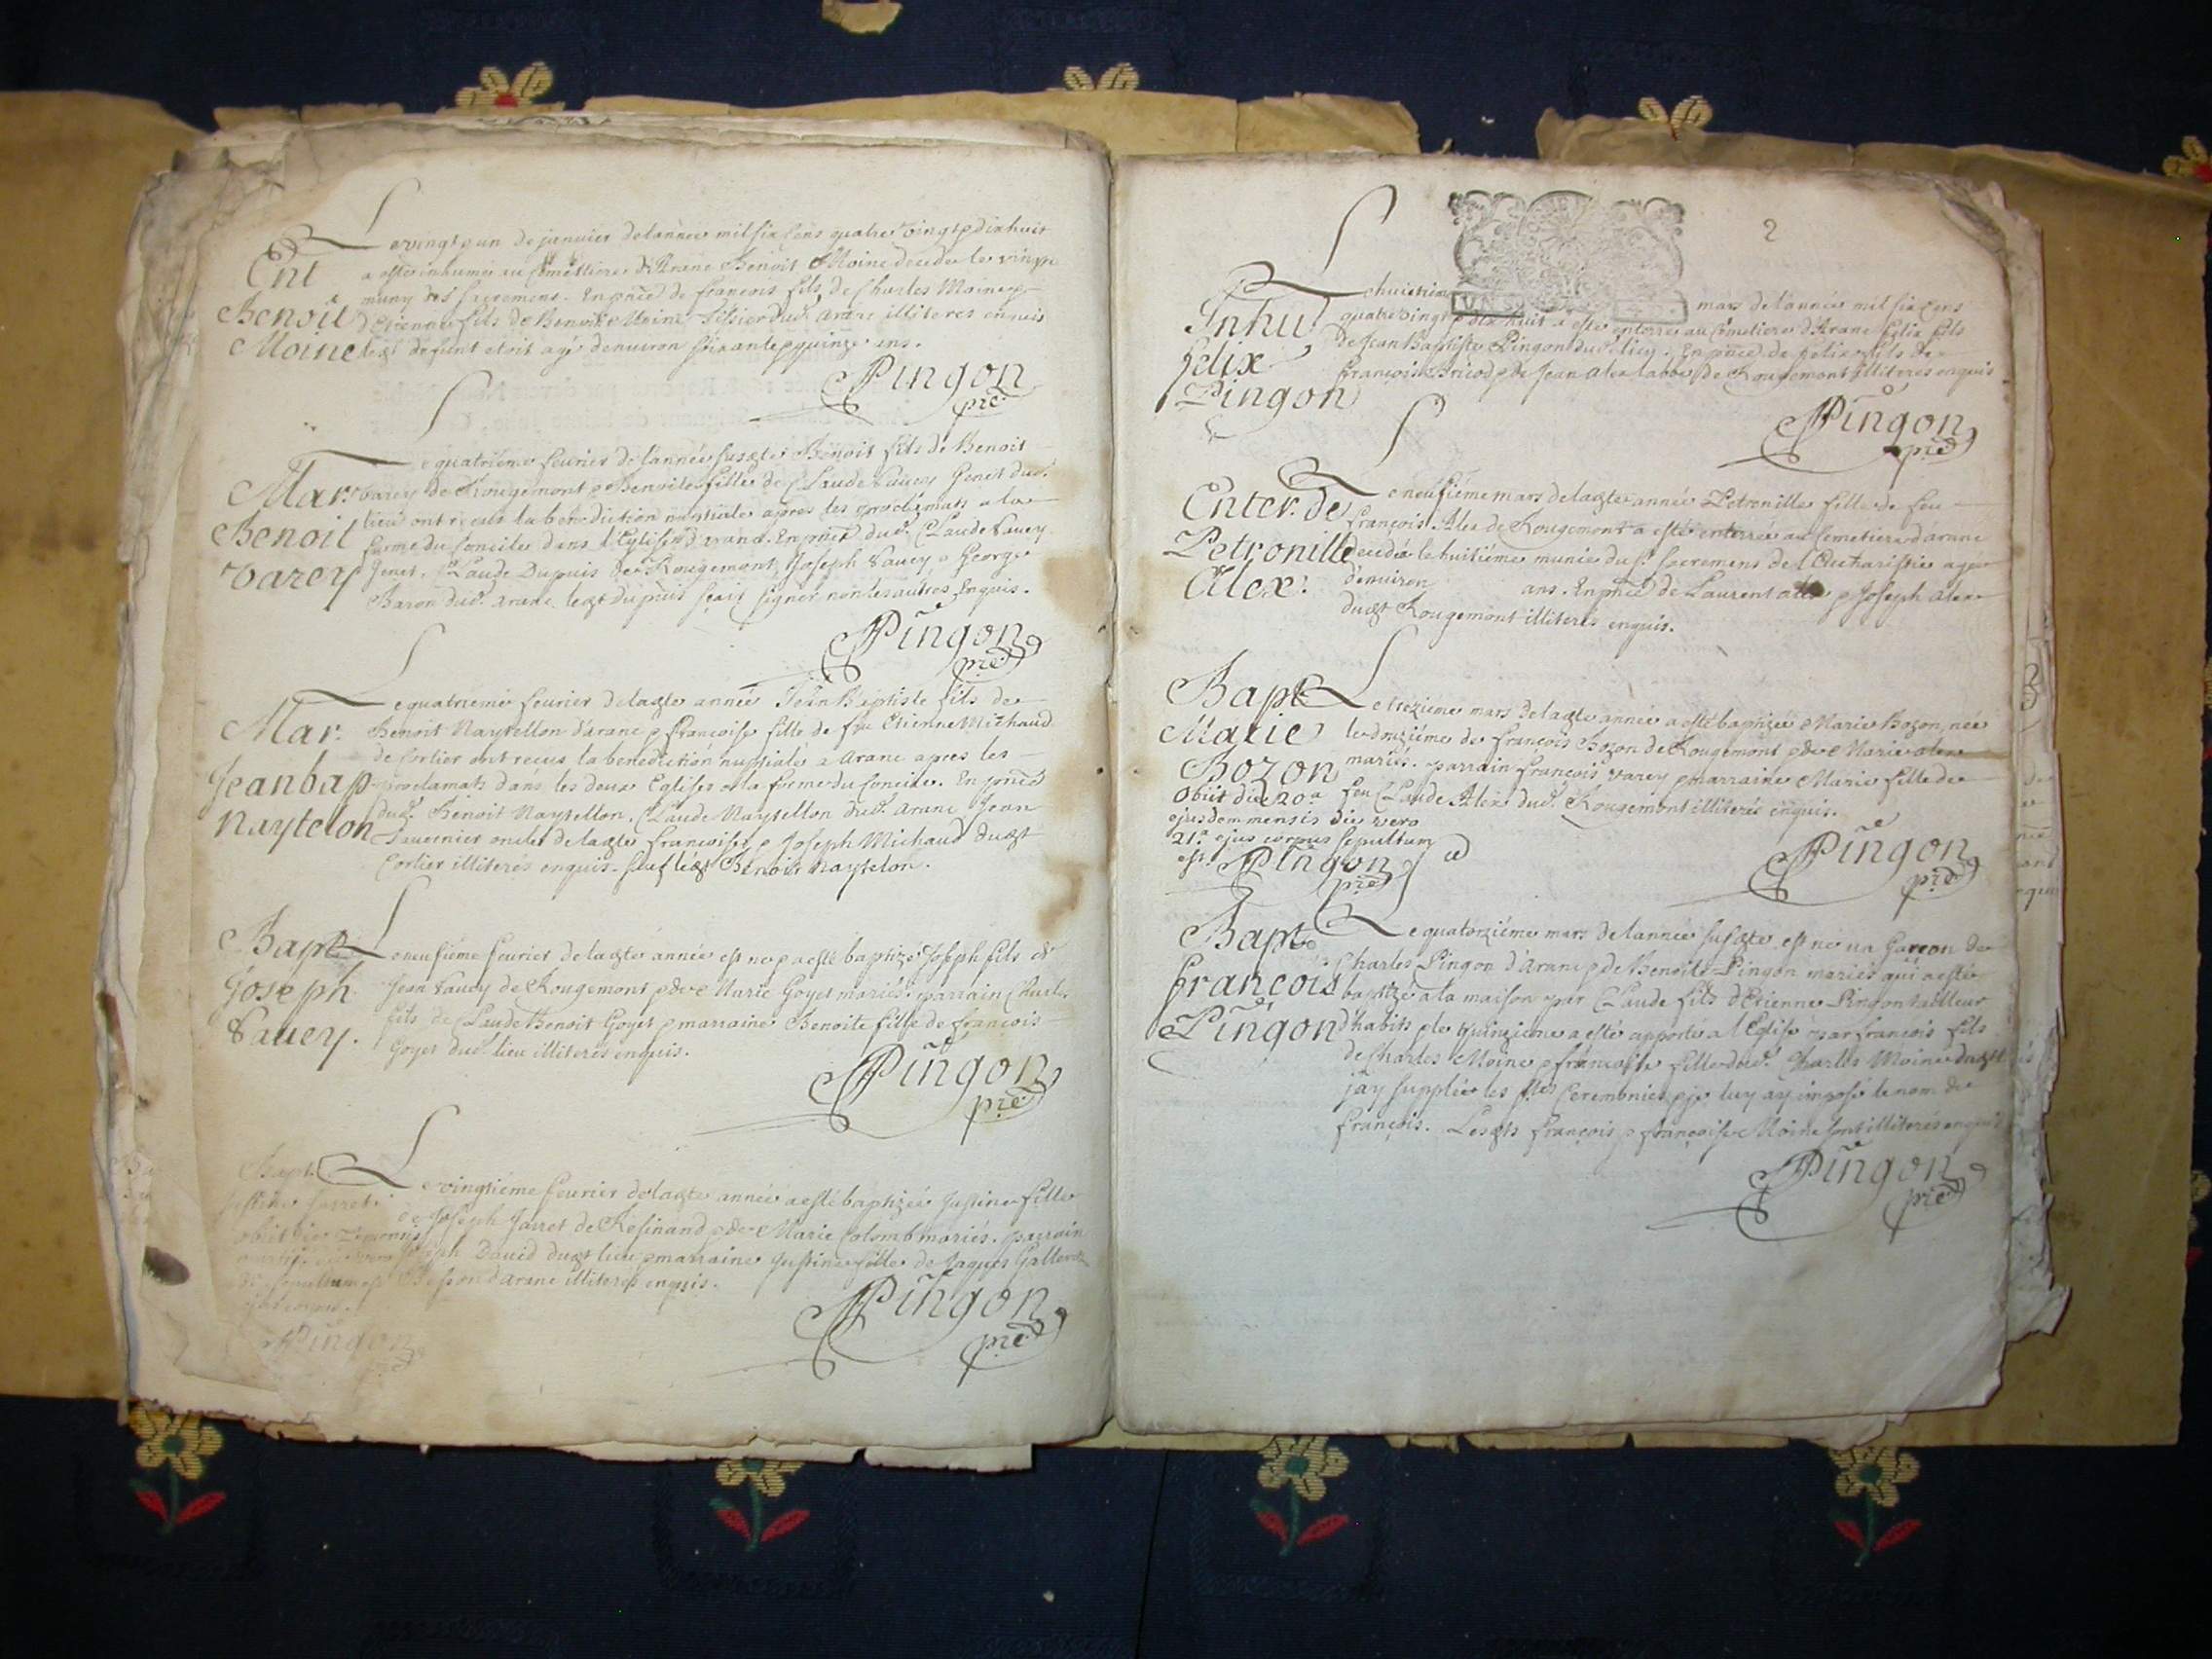 Ent
Benoit
Moine
Le vingt p un de janvier de lannee mil six cens quatre vingt p dix huit
a esté inhumé au Cimettiere d'Arane Benoit Moine decede le vingt
muny des sacremens. En pnce de francois fils de Charles Moine p
d'Etienne fils de Benoit Moine Tissier dud. Arane illiteres enquis
legt defunt etoit agé denuiron soixante p quinze ans.
Pingon
pre
Mar.
Benoit
Varey
Le quatrième feurier de lannée susgte Benoit fils de Benoit
varey de Rougemont p Benoite fille de Claude Vaucy Genet dud.
lieu ont reçus la benediction nuptiale apres les proclamats a la
forme du Concile dans l'Eglise d'arane. En pnce dud. Claude Vaucy
Genet, Claude Dupuis de Rougemont, Joseph Vaucy p George
Baron dud. arane legt dupuis sçait signer non les autres Enquis.
Pingon
pre
Mar.
Jeanbap
Naytelon
Le quatrieme feurier de lagte année Jean Baptiste fils de
Benoit Naytellon d'arane p francoise fille de feu Etienne Michaud
de Corlier ont recus la benediction nuptiale a Arane apres les
proclamats dans les deux Eglises a la forme du Concile. En pnce
dud. Benoit Naytellon, Claude Naytellon dud. Arane Jean
Tauernier oncle de lagte francoise, p Joseph Michaud dugt
Corlier illiterés enquis. sauf legt Benoit naytelon.
Bapt.
Joseph
Vaucy.
Le neufiéme feurier de lagte année est ne p a esté baptizé Joseph fils de
Jean Vaucy de Rougemont p de Marie Goyet mariés. parrain Charle
fils de Claude Benoit Goyet p marraine Benoite fille de francois
Goyet dud. lieu illiterés enquis.
Pingon
pre
Bapt.
Justine Jarret.
obiit die
Pingon
pre
Le vingtiéme feurier de lagte année a esté baptizée Justine fille
de Joseph Jarret de Resinand p de Marie Colomb mariés. parrain
Joseph Dauid dugt lieu p marraine Justine fille de Jaques Gallend
Besson d'arane illiterés enquis.
Pingon
pre
2
Inhu.
felix
Pingon
Le huictriéme mars de lannée mil six cens
quatre vingt p dix huit a esté enterré au Cimetiere d'Arane felix fils
de Jean Baptiste Pingon dud. lieu. En pnce de felix fils de
francois Bricod p de Jean alex labour de Rougemont illiterés enquis
Pingon
pre
Enter. de
Petronille
Alex.
Le neufiéme mars de lagte année Petronille fille de feu
françois Alex de Rougemont a esté enterrée au Cemetiere d'arane
decedée le huitiéme munie du St. sacremens de l'Eucharistie agée
denuiron ans. En pnce de Laurent alex p Joseph alex
dugt Rougemont illiterés enquis.
Bapt
Marie
Bozon
Obiit die 20a
ejusdem mensis die vero
21a ejus corpus sepultum
est.
Pingon
pre
Le trezieme mars de lagte année a esté baptizée Marie Bozon née
le douziéme de françois Bozon de Rougemont p de Marie alex
mariés. parrain francois varey p marraine Marie fille de
feu Claude Alex dud. Rougemont illiterés enquis.
Pingon
pre
Bapt.
françois
Pingon
Le quatorziéme mars de lannée susgte est ne un Garcon de
Charles Pingon d'Arane p de Benoite Pingon mariés qui a esté
baptizé a la maison par Claude fils d'Etienne Pingon tailleur
d'habits p le quinzieme a esté apporté a l'Eglise par francois fils
de Charles Moine p francoise fille dud. Charles Moine dugt
jay supplée les stes Ceremonies p je luy ay imposé le nom de
françois. Lesgts françois p françoise Moine sont illiterés enquis
Pingon
pre